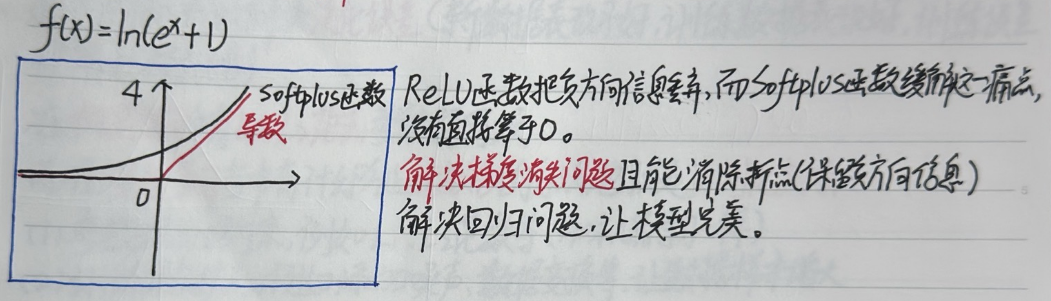 f(x)=ln(eˣ+1)
4
Softplus函数
导数
0
ReLU函数把负方向信息丢弃,而Softplus函数缓解这一痛点,
没有直接等于0。
解决梯度消失问题且能消除折点(保留负方向信息)
解决回归问题,让模型完美。